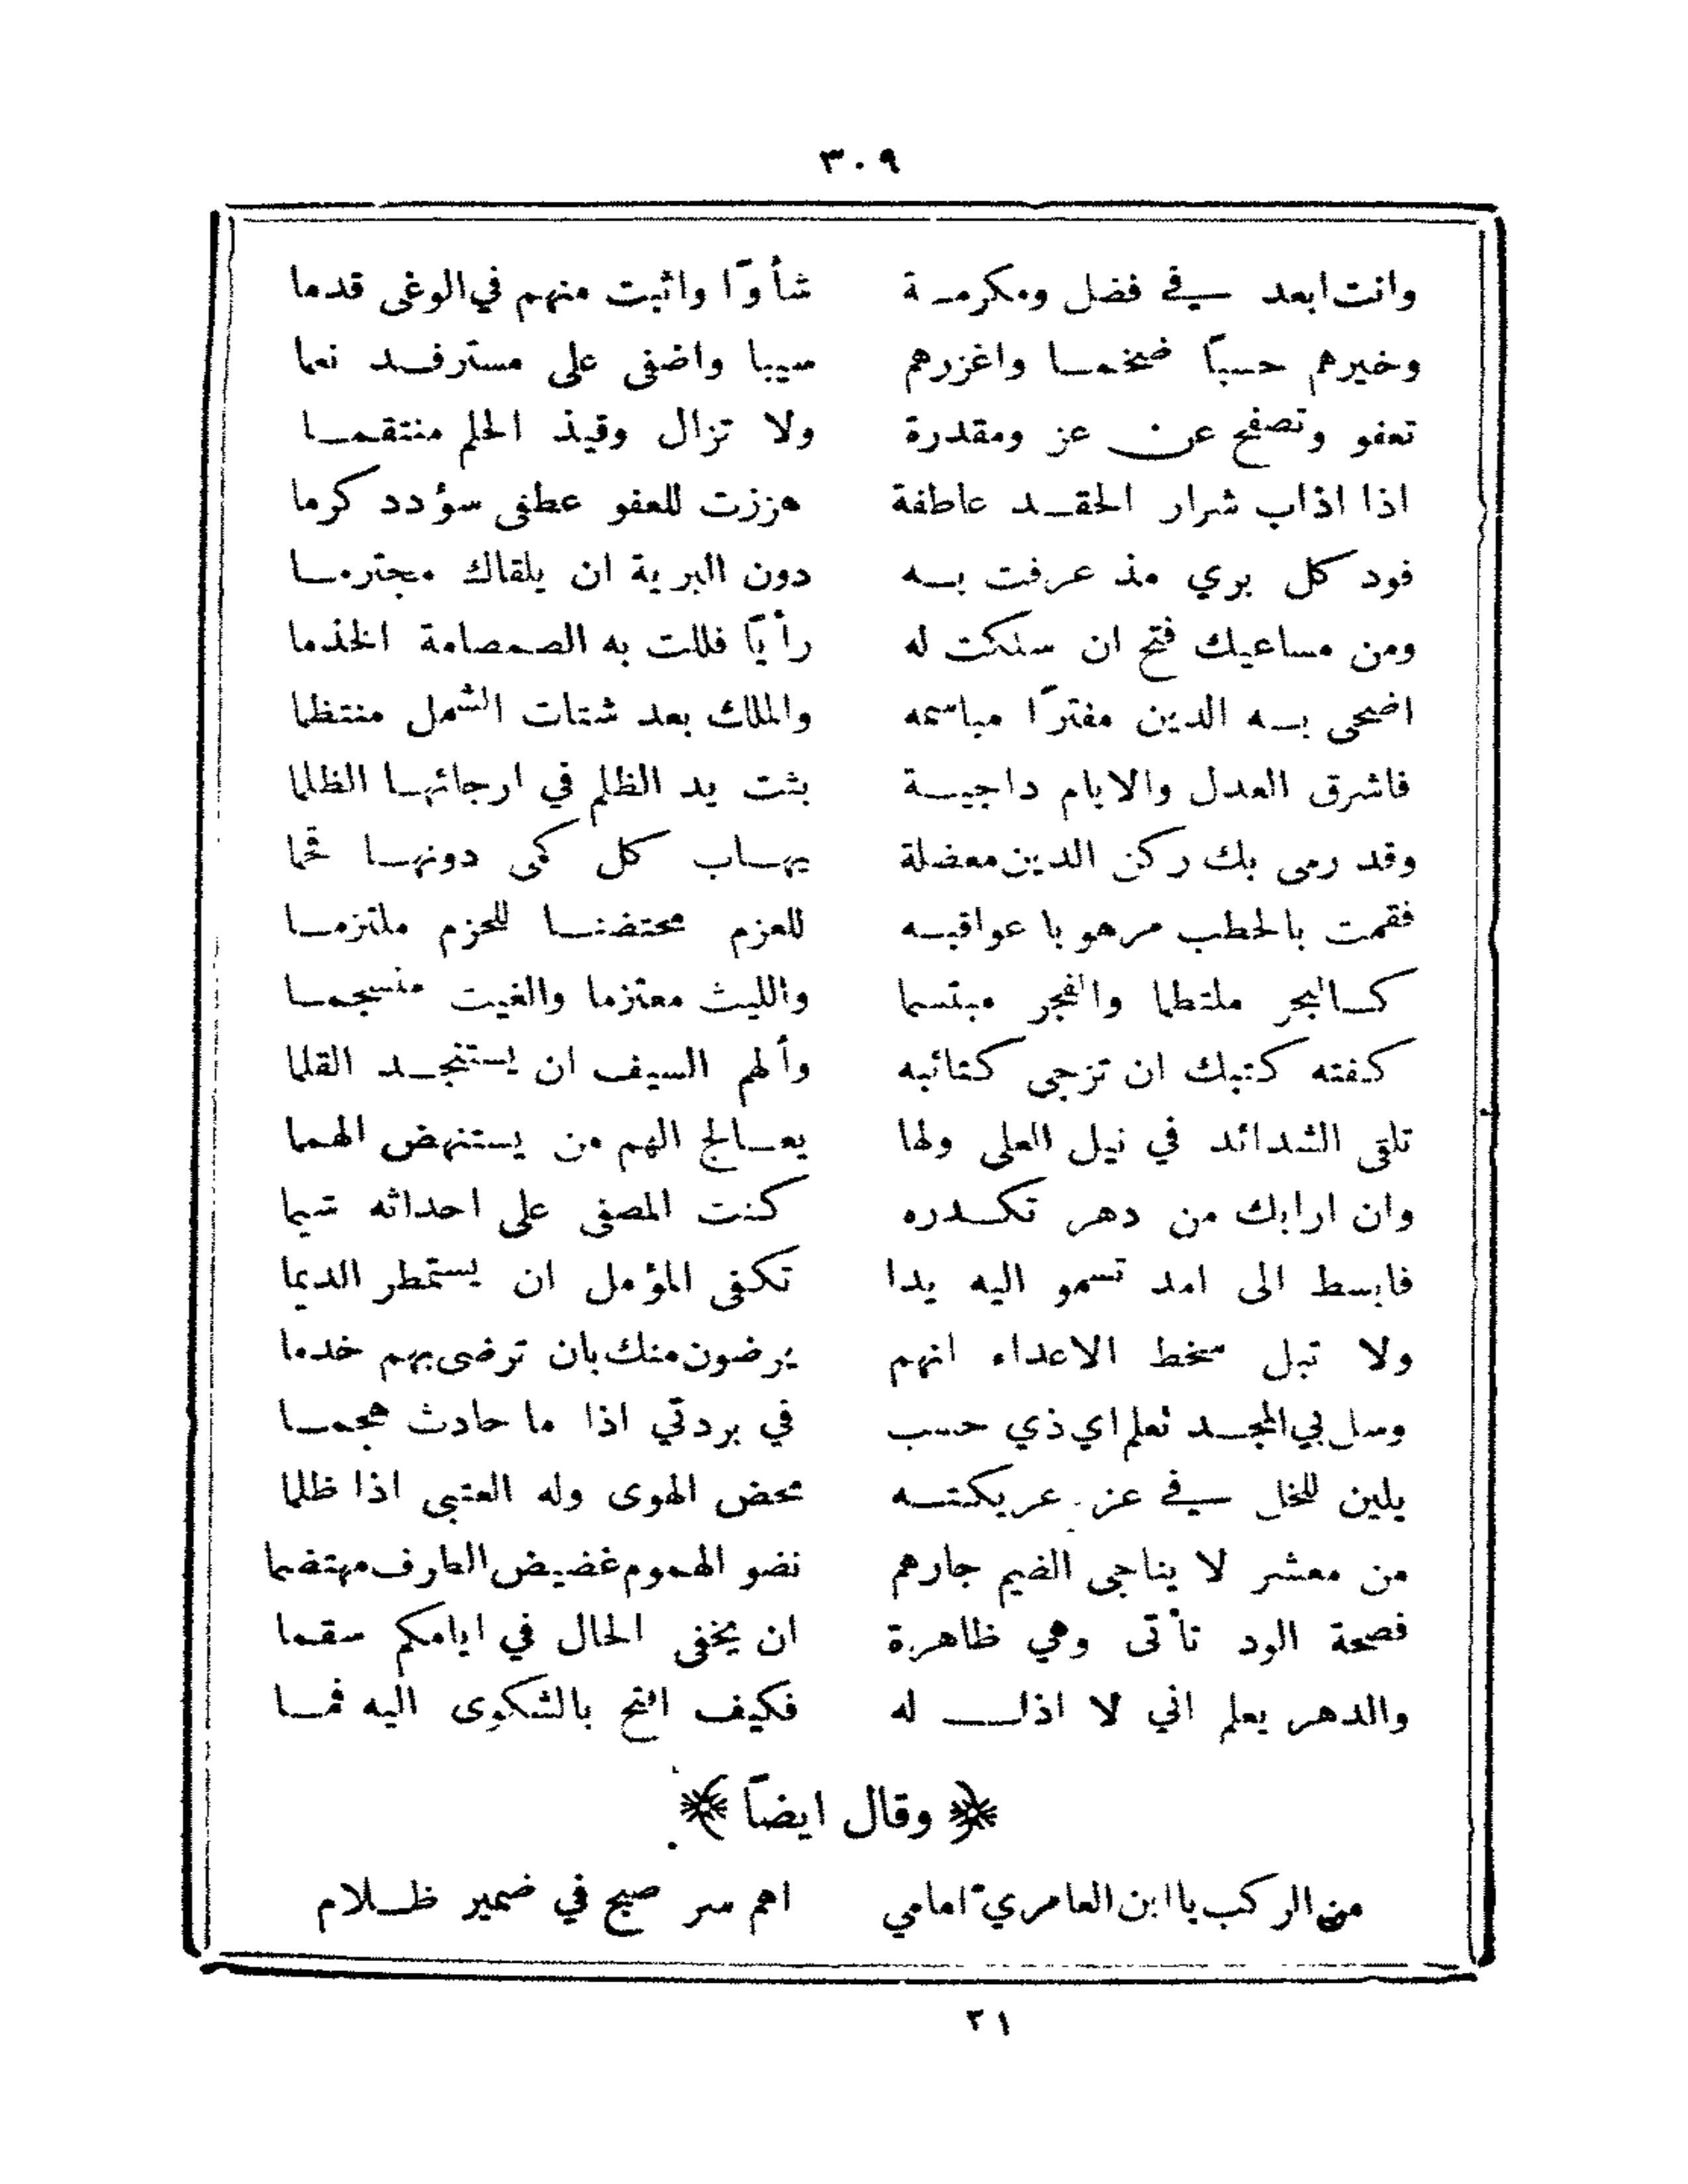 ٣٠٩
وانت ابعد في فضل ومكرمة شأوًا واثبت منهم في الوغى قدما
وخيرهم حسبًا ضخما واغزرهم سيبا واضفى على مسترفد نعما
تعفو وتصفح عن عز ومقدرة ولا تزال وقيذ الحلم منتقما
اذا اذاب شرار الحقد عاطفة هززت للعفو عطفي سؤدد كرما
فود كل بري مذ عرفت به دون البرية ان يلقاك مجترما
ومن مساعيك فتح ان سلكت له رأيًا فللت به الصمصامة الخذما
اضحى به الدين مفترًا مباسمه والملك بعد شتات الشمل منتظما
فاشرق العدل والايام داجية بثت يد الظلم في ارجائها الظلما
وقد رمى بك ركن الدين معضلة يهاب كل كمي دونها قحما
فقمت بالخطب مرهوبا عواقبه للعزم محتضنا للحزم ملتزما
كالبحر ملتطما والفجر مبتسما والليث معتزما والغيث منسجما
كفته كتبك ان تزجى كتائبه وألهم السيف ان يستنجد القلما
تلقى الشدائد في نيل العلى ولها يعالج الهم من يستنهض الهمما
وان ارابك من دهر تكدره كنت المصفى على احداثه شيما
فابسط الى امد تسمو اليه يدا تكفي المؤمل ان يستمطر الديما
ولا تبل سخط الاعداء انهم يرضون منك بان ترضى بهم خدما
وسل بي المجد تعلم اي ذي حسب في بردتي اذا ما حادث هجما
يلين للخل في عز عريكته محض الهوى وله العتبى اذا ظلما
من معشر لا يناجى الضيم جارهم نضو الهموم غضيض الطرف مهتضما
فصحة الود تأتى وهي ظاهرة ان يخفى الحال في ايامكم سقما
والدهر يعلم اني لا اذل له فكيف افتح بالشكوى اليه فما
﴿ وقال ايضاً ﴾
من الركب يا ابن العامري امامي اهم سر صبح في ضمير ظلام
٢١